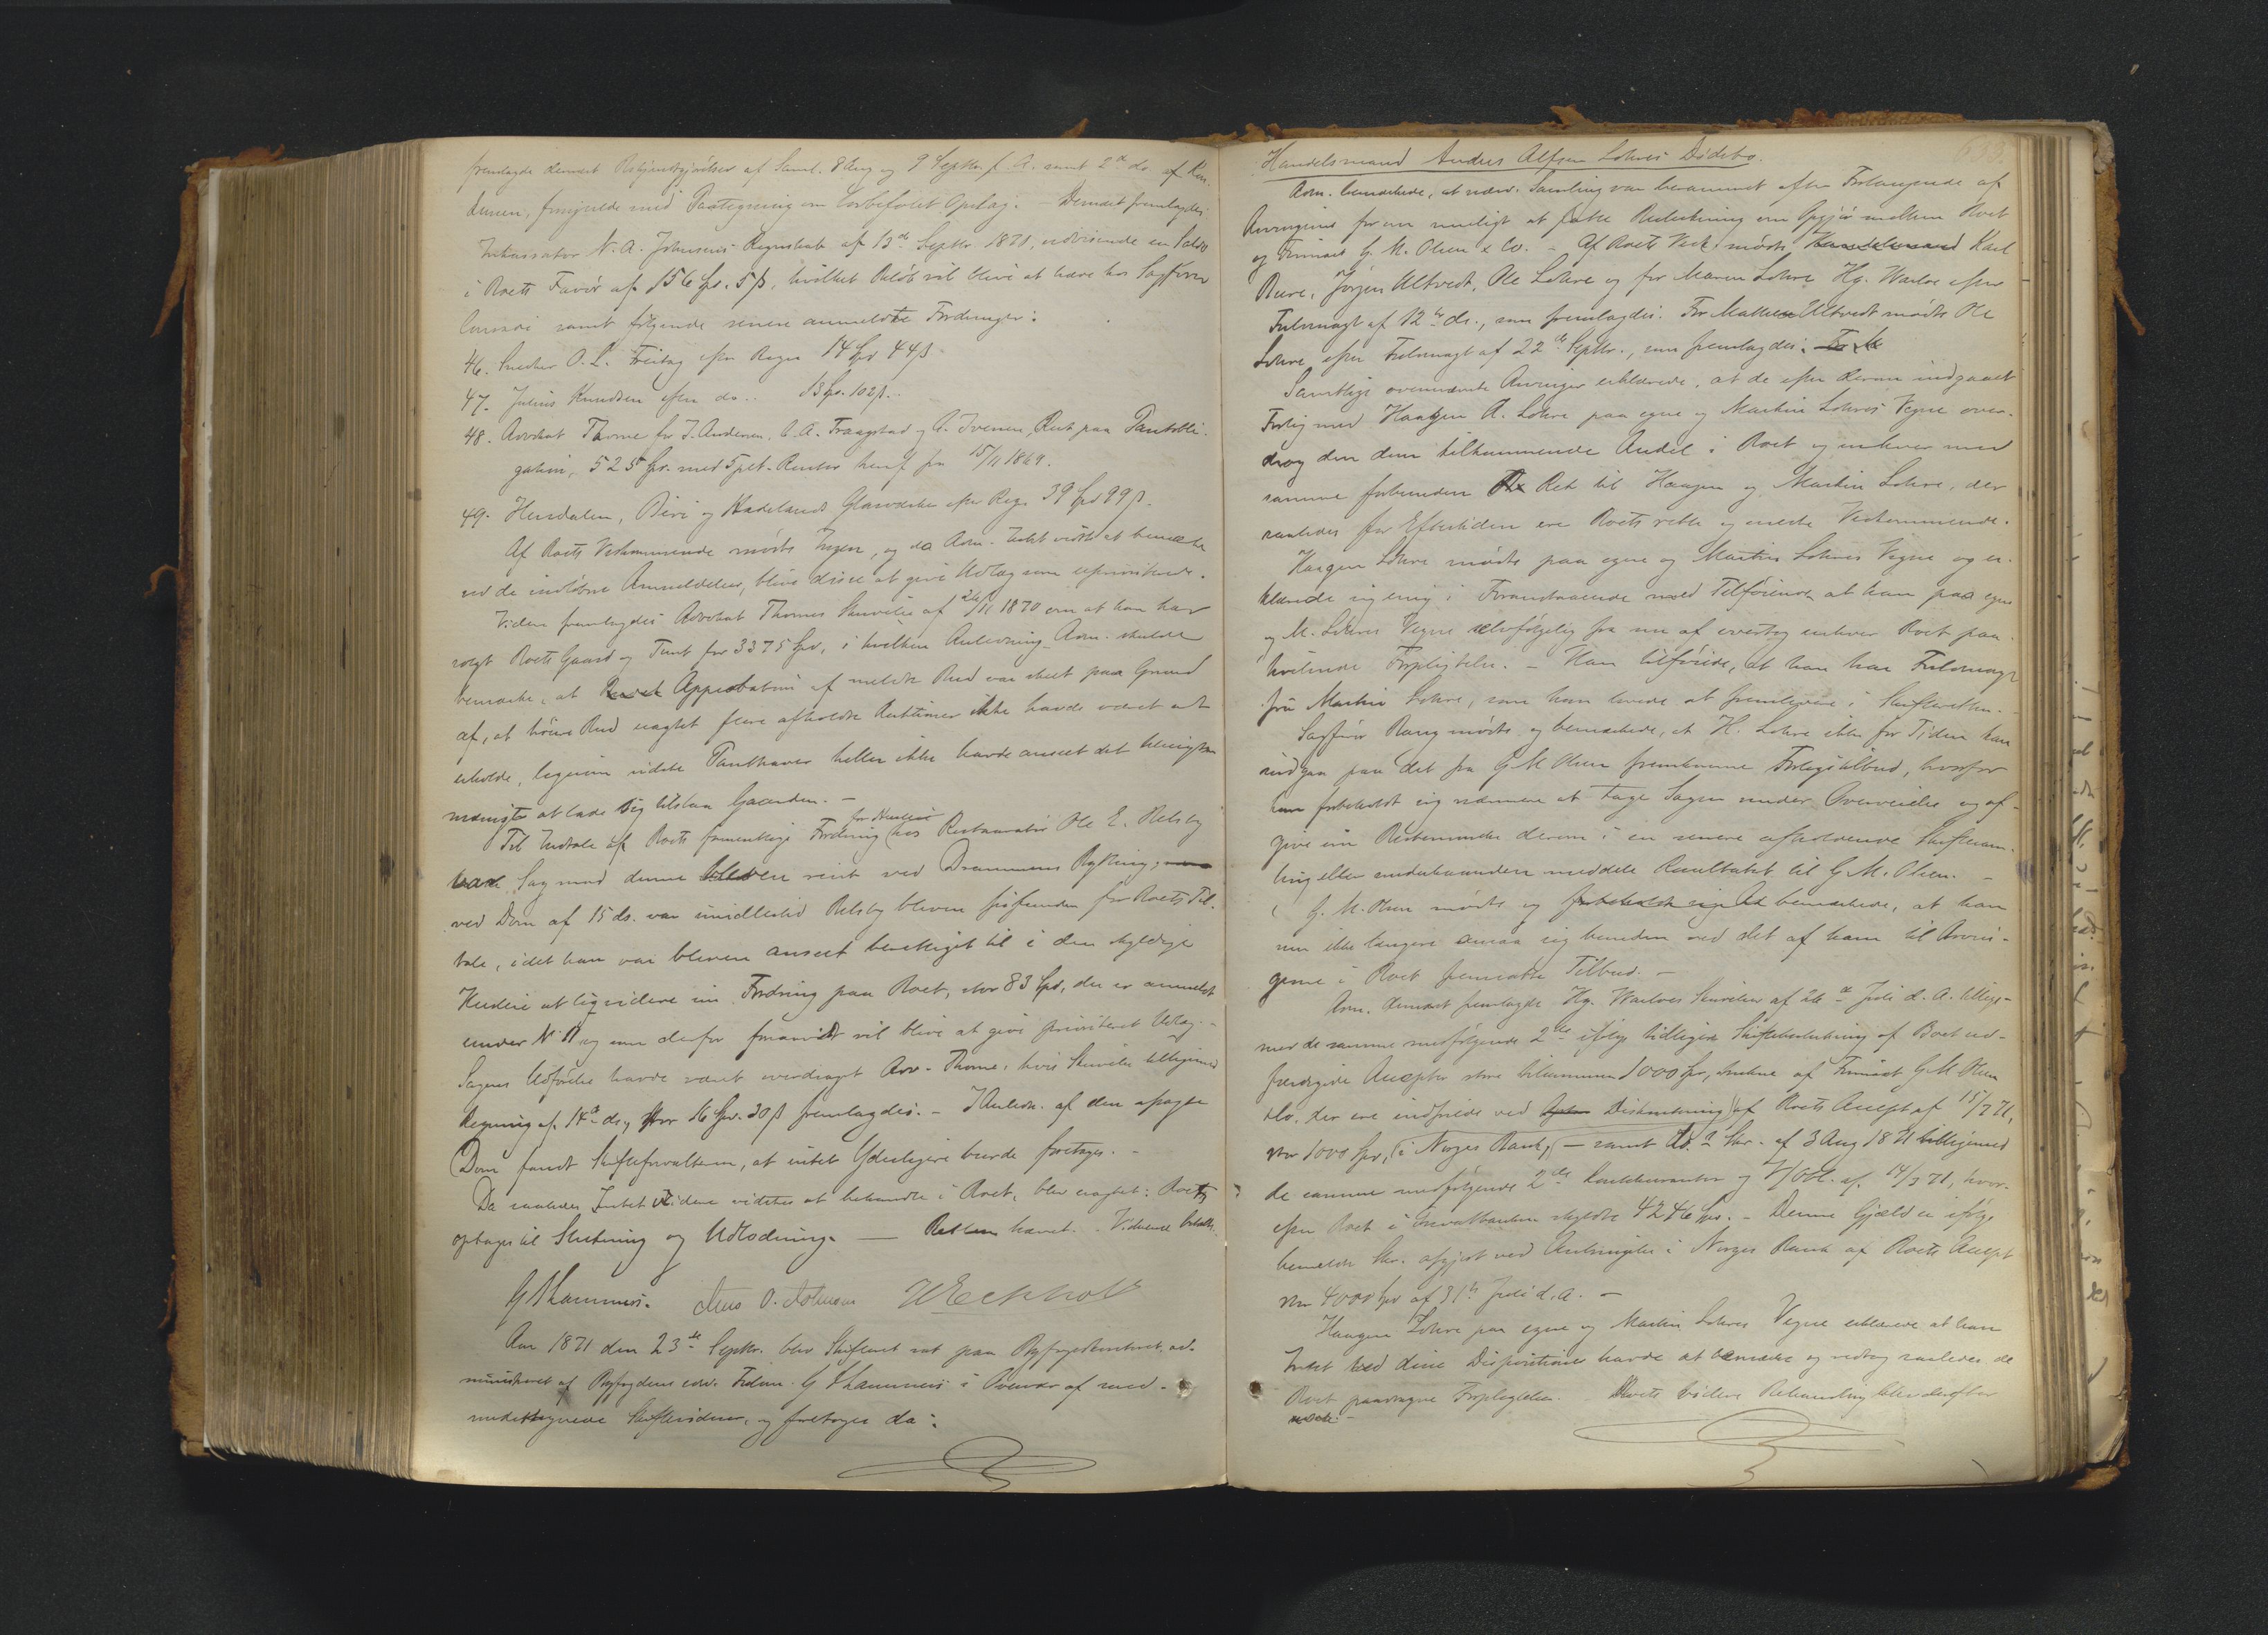 fremlagde dernæst Bekjendtgjørelser af Saml. 8 Aug og 9 Septbr f. A. samt 2de do. af
demien, forsynede med Paategning om lovbefalet Opslag. – Dernæst fremlagdes
Inkassator N. A. Johnsens Regnskab af 13de Septbr 1871, udvisende en Saldo
i Boets Favør af 156 Spd. 5 β, hvilket Beløb vil blive at hæve hos Sagfører
samt følgende senere anmeldte Fordringer:
46. Snedker O. L. Freitag efter Regn 14 Spd 44 β.
47. Julius Knudsen efter do.. 13 Spd. 102 β.
48. Advokat Thorne for J. Andersen, C. A. Traagstad og A. Ivensen, Rest paa Pantobli-
gation, 525 Spd. med 5 pct. Renter heraf fra 15/11 1869.
49. Hurdalen, Biri og Hadelands Glasværker efter Regn 39 Spd 99 β.
Af Boets Vedkommende mødte Ingen, og da Adm. Intet vidste at bemærke
ved de indløbne Anmeldelser, blive disse at give Udlæg som uprioriterede.
Videre fremlagdes Advokat Thornes Skrivelse af 26/11 1870 om at han har
solgt Boets Gaard og Tomt for 3375 Spd, i hvilken Anledning Adm. skulde
bemærke, at Approbation af meldte Bud var skeet paa Grund
af, at høiere Bud uagtet flere afholdte Auktioner ikke havde været at
erholde, ligesom sidste Panthaver heller ikke havde anseet det hensigts-
mæssigt at lade sig tilslaa Gaarden. –
Til Indtale af Boets formentlige Fordring for Husleie hos Restauratør Ole E. Relsby
var Sag mod denne bleven reist ved Drammens Byting;
ved Dom af 15 ds. var imidlertid Relsby bleven frifunden for Boets Til-
tale, idet han var bleven anseet berettiget til i den skyldige
Husleie at liqvidere sin Fordring paa Boet, stor 83 Spd, der er anmeldt
under N. 11 og som derfor forsaavidt vil blive at give prioriteret Udlæg. –
Sagens Udførelse havde været overdraget Adv. Thorne, hvis Skrivelse tilligemed
Regning af 14de ds., stor 16 Spd. 30 β fremlagdes. – I Anledn. af den afsagte
Dom fandt Skifteforvalteren, at intet Yderligere burde foretages. –
Da saaledes Intet videre vidstes at behandle i Boet, blev eragtet: Boet
optages til Slutning og Udlodning. — Retten hævet. – Vidnerne betalt.
G Thammers. Jens O. Johnsen
Aar 1871 den 23de Septbr. blev Skifteret sat paa Byfogedkontoret, ad-
ministreret af Byfogdens edsv. Fuldm. G Thammers i Overvær af med-
undertegnede Skiftevidner, og foretoges da:
Handelsmand Anders Alfsen Lohres Dødsbo.
Adm. bemærkede, at nærv. Samling var berammet efter Forlangende af
Arvingerne for om muligt at fatte Beslutning om Opgjør mellem Boet
og Firmaet G. M. Olsen & Co. – Af Boets Vedk. mødte Handelsmand Karl
Bure, Jørgen Ultvedt, Ole Lohre og for Maren Lohre Hg. Warloe efter
Fuldmagt af 12te ds., som fremlagdes. For Ultvedt mødte Ole
Lohre, efter Fuldmagt af 22de Septbr., som fremlagdes.
Samtlige ovennævnte Arvinger erklærede, at de efter derom indgaaet
Forlig med Haagen A. Lohre paa egne og Martin Lohres Vegne over-
drog den dem tilkommende Andel i Boet og enhver med
samme forbunden Ret til Haagen og Martin Lohre, der
saaledes for Eftertiden ere Boets rette og eneste Vedkommende.
Haagen Lohre mødte paa egne og Martin Lohres Vegne og er-
klærede sig enig i Foranstaaende med Tilføiende at han paa egne
og M. Lohres Vegne selvfølgelig fra nu af overtog enhver Boet paa-
hvilende Forpligtelse. – Han tilføiede, at han har Fuldmagt
fra Martin Lohre, som han lovede at fremlevere i Skifteretten. –
Sagfører Bang mødte og bemærkede, at H. Lohre ikke for Tiden kan
indgaa paa det fra G M Olsen fremkomne Forligstilbud, hvorfor
han forbeholdt sig nærmere at tage Sagen under Overveielse og af-
give sin Bestemmelse derom i en senere afholdende Skiftesam-
ling eller underhaanden meddele Resultatet til G. M. Olsen. –
G. M. Olsen mødte og forbeholdt sig bemærkede, at han
nu ikke længere ansaa sig bunden ved det af ham til Arvin-
gerne i Boet fremsatte Tilbud. –
Adm. dernæst fremlagde Hg. Warloes Skrivelse af 26de Juli d. A. tillige-
med de samme medfølgende 2de ifølge tidligere Skiftebeslutning af Boet ud-
færdigede Accepter store tilsammen 1000 Spd, trukne af Firmaet G M Olsen
& Co., der ere indfriede ved Diskontering af Boets Accept af 15/7 71,
stor 1000 Spd, i Norges Bank, – samt do.s Skr. af 3 Aug 1871 tilligemed
de samme medfølgende 2de og V/Obl. af 14/3 71, hvor-
efter Boet i Privatbanken skyldte 4246 Spd. – Denne Gjæld er ifølge
bemeldte Skr. afgjort ved Antagelse i Norges Bank af Boets Accept
stor 4000 Spd af 31te Juli d. A. –
Haagen Lohre paa egne og Martin Lohres Vegne erklærede at han
Intet ved disse Dispositioner havde at bemærke og vedtog saaledes de
Boet paadragne Forpligtelser. – Boets videre Behandling blev derefter
udsat. –